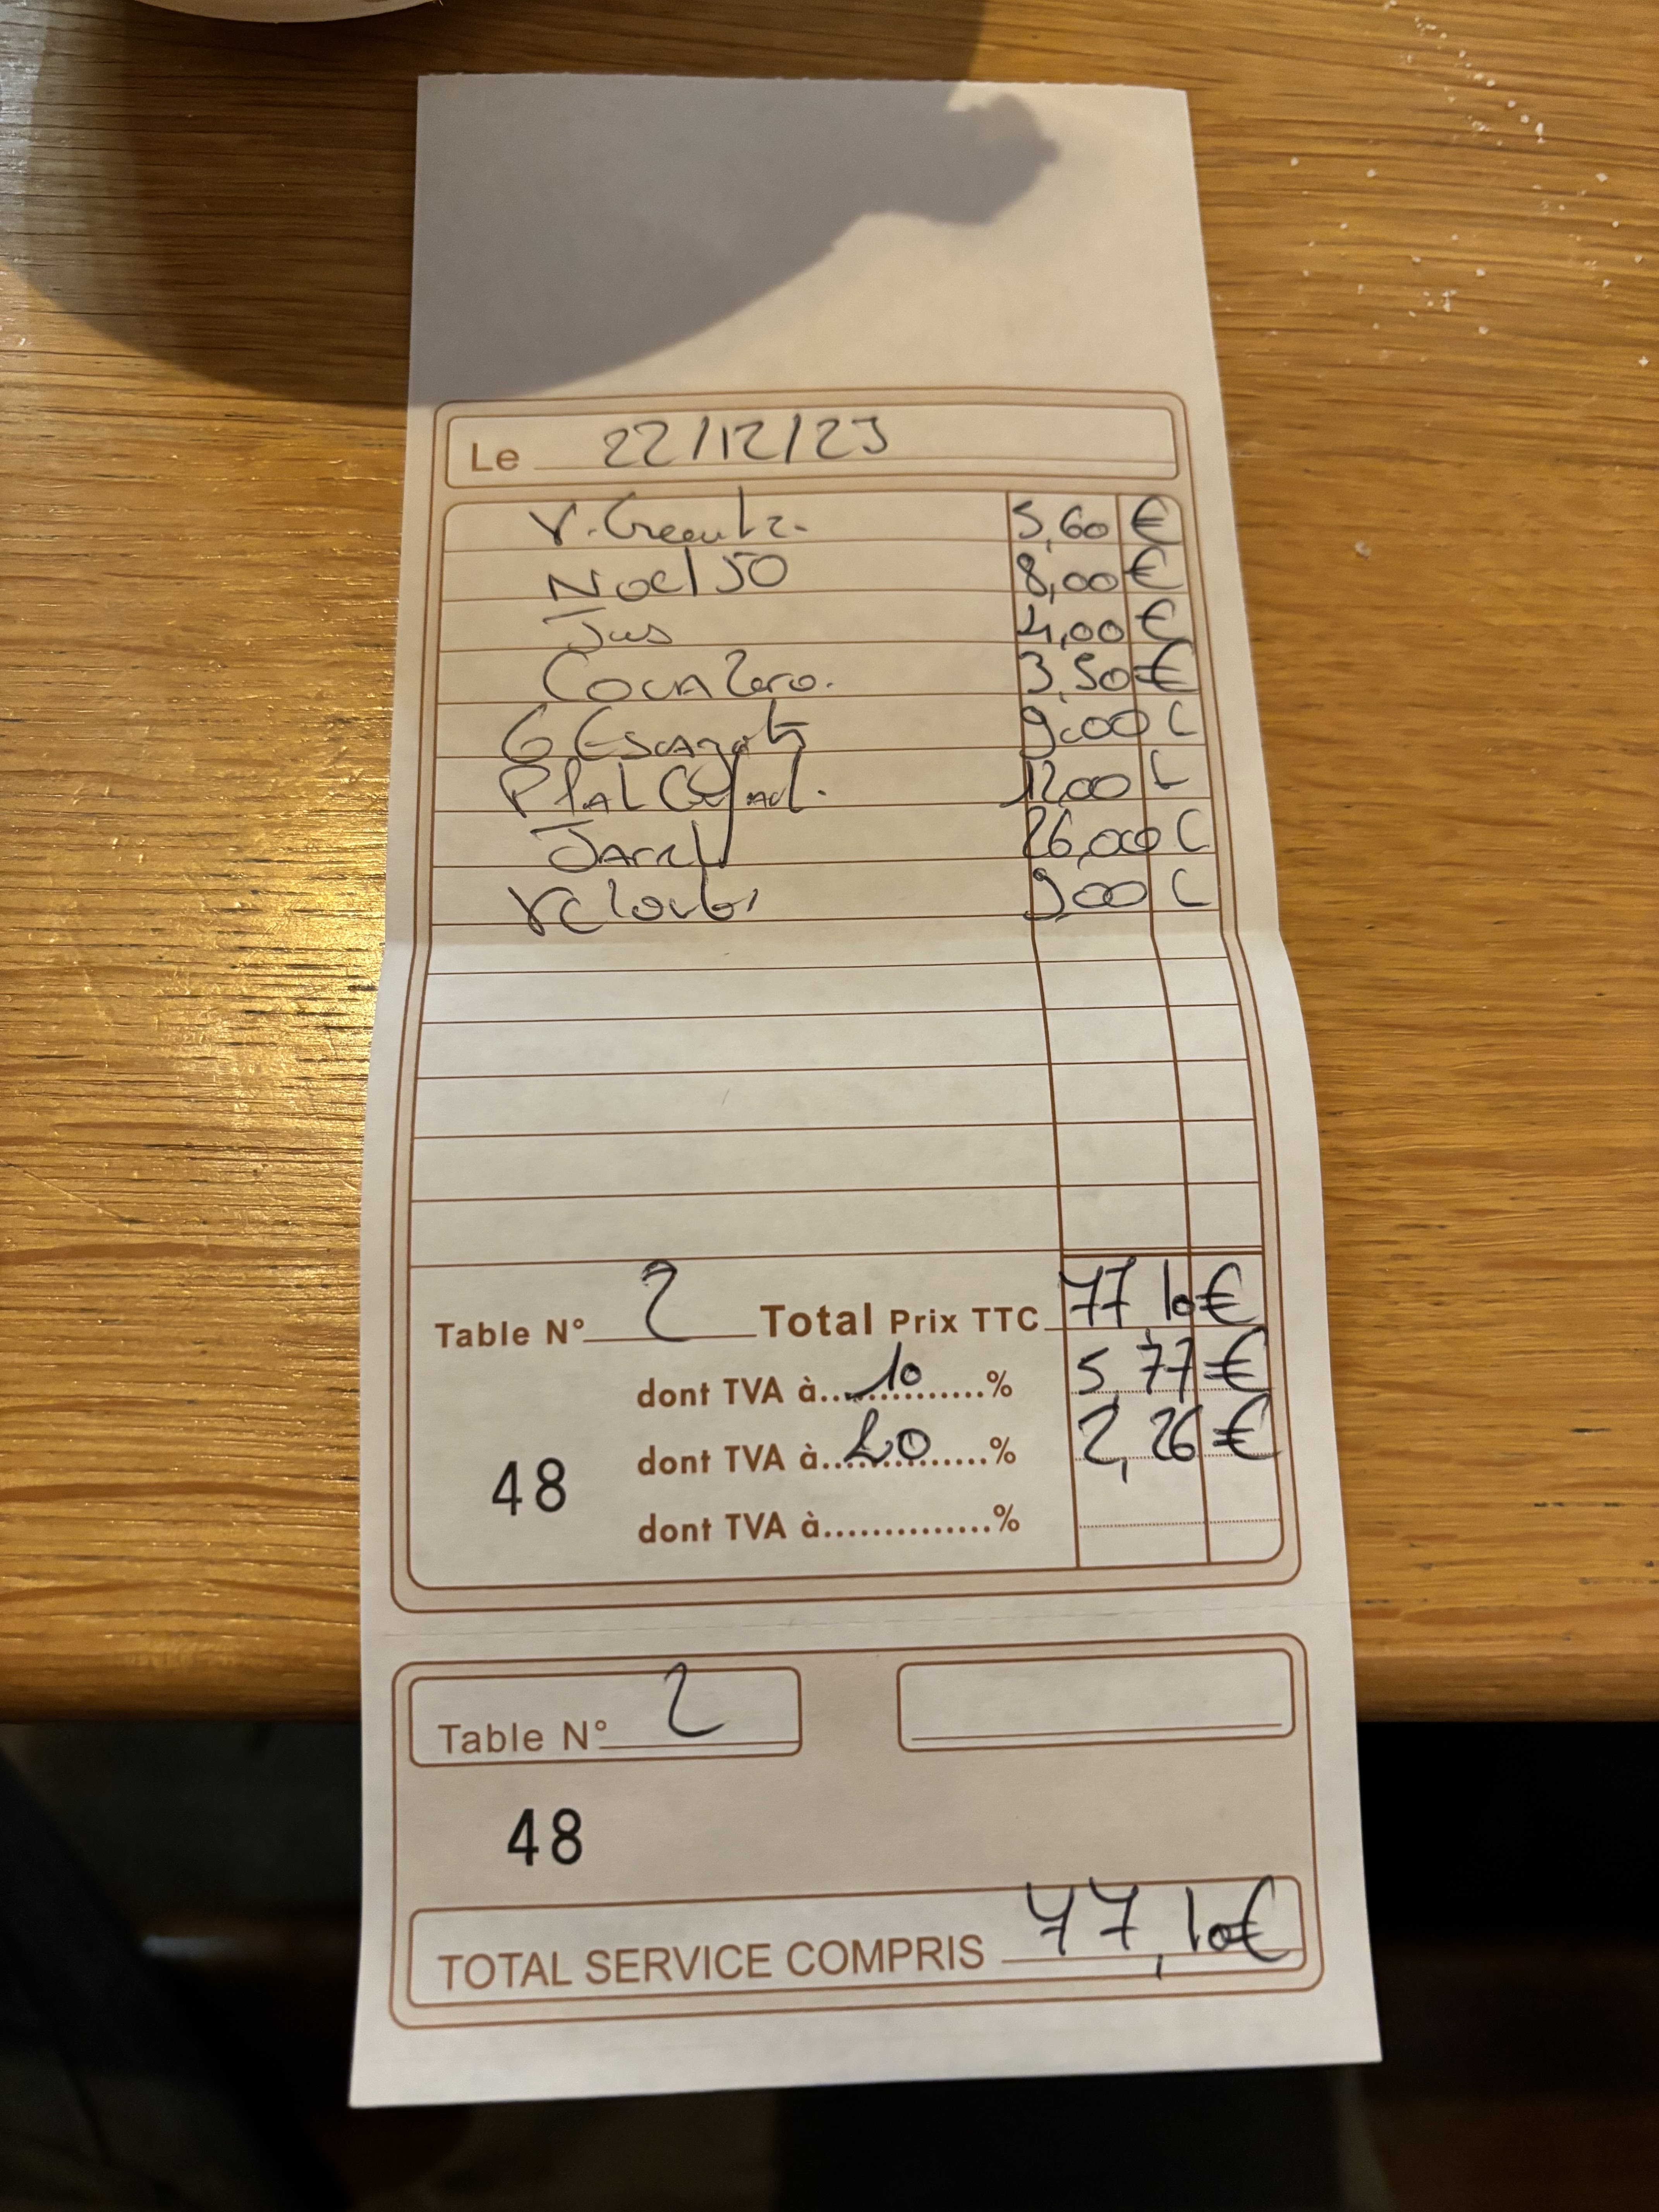 Le 22/12/23
V. 5,60 €
Noel 50 8,00 €
Jus 4,00 €
Coca Zero. 3,50 €
6 Escargots 9,00 €
Plat 12,00 €
26,00 €
Velouté 9,00 €
Table N° 2 Total Prix TTC 77,10 €
dont TVA à 10 % 5,77 €
48 dont TVA à 20 % 2,26 €
dont TVA à..............%
Table N° 2
48
TOTAL SERVICE COMPRIS 77,10€